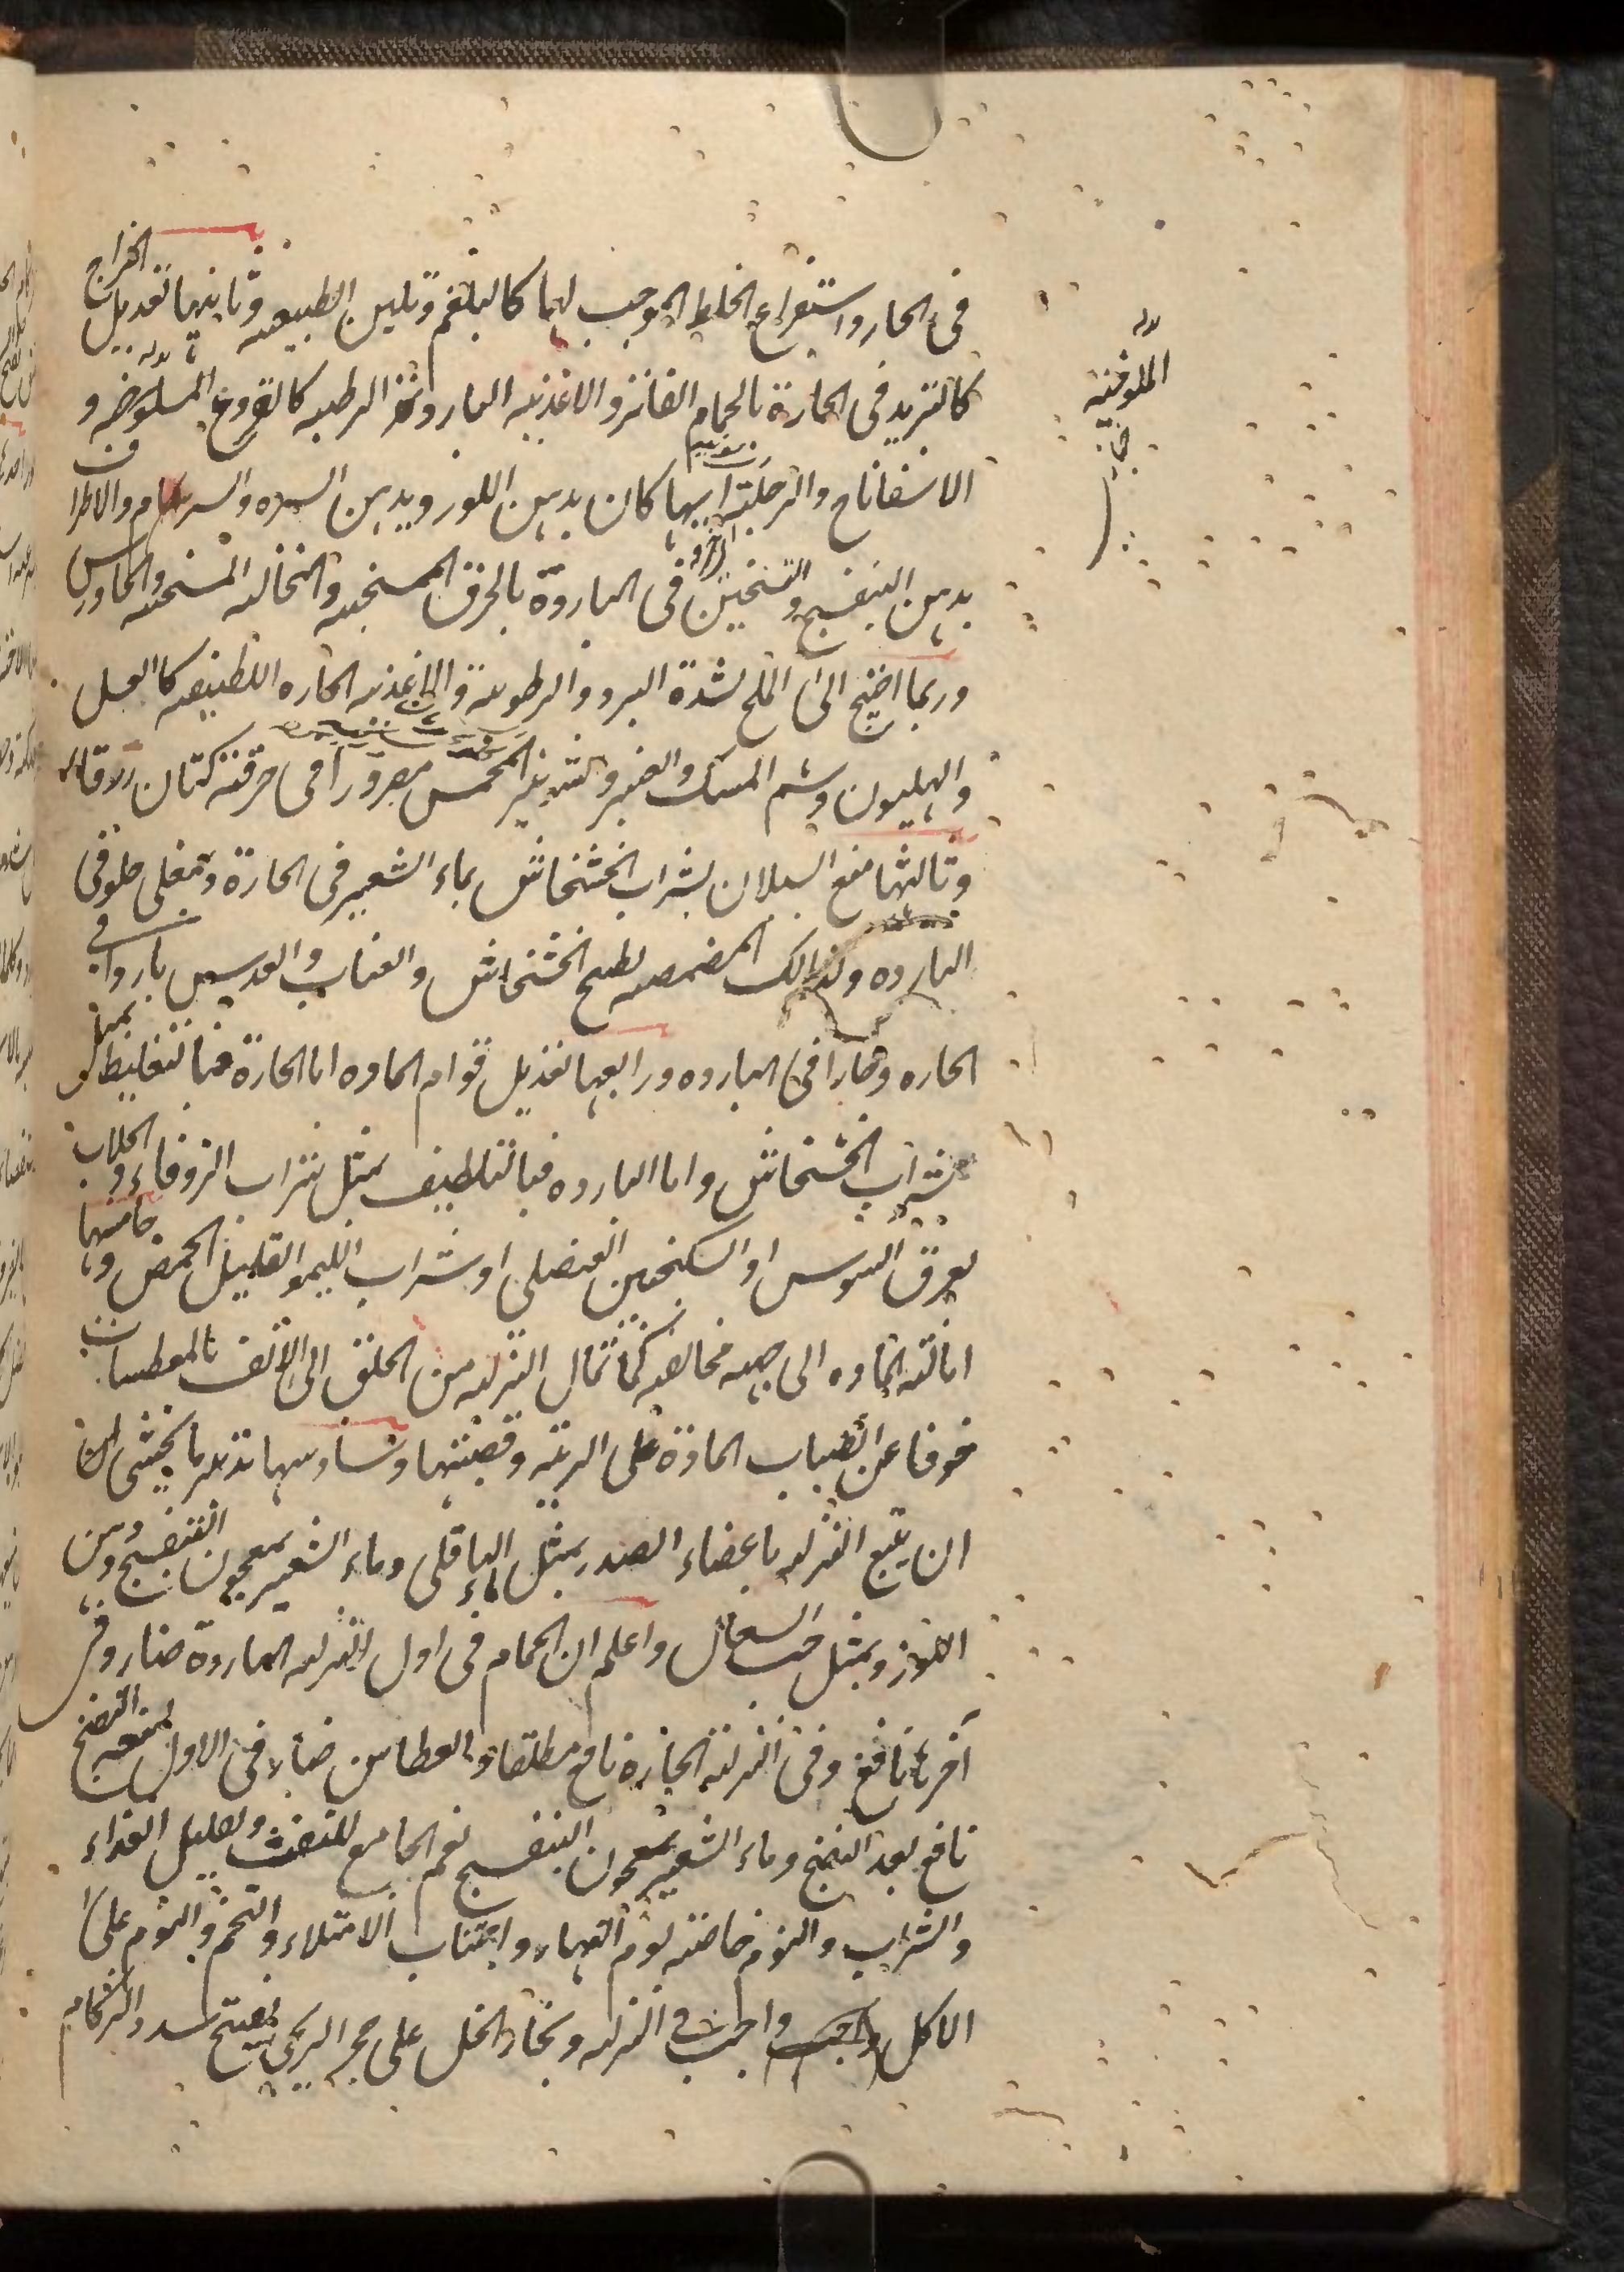 فى الحار واستفراغ الخلط الموجب لهما كالبلغم وتليين الطبيعه وثانيها تعديل المزاج
كالتبريد فى الحارة بالحمام الفاتر والاغذيه البارده الرطبه كالقروع الملوخيه و
الاسفاناخ والرجلة ايها كان بدهن اللوز ويدهن السره والسرم والاطراف
بدهن البنفسج والتسخين فى الباردة بالخرق المسخنه والنخاله المسخنه والجاورس
وربما احتيج الى الملح لشدة البرد والرطوبه والاغذيه الحاره اللطيفه كالعسل
والهليون وشم المسك والعنبر والشونيز المحمص مصرورا فى خرقة كتان زرقاء
وثالثها منع السيلان بشراب الخشخاش بماء الشعير فى الحارة وبمغلى حلو فى
البارده وكذلك المضمضه بطبخ الخشخاش والعناب والعدس باردا فى
الحاره وحارا فى البارده ورابعها تعديل قوام الماده اما الحارة فبالتغليظ بمثل
شراب الخشخاش واما البارده فبالتلطيف بمثل شراب الزوفاء والجلاب
بعرق السوس او السكنجبين العنصلى او شراب الليمو القليل الحمض وخامسها
امالة الماده الى جهه مخالفه كما تمال النزله من الحلق الى الانف بالمعطسات
خوفا عن انصباب المادة على الريه وقصبتها وسادسها تدبير ما يخشى من
ان يتبع النزله باعضاء الصدر بمثل ماء الباقلى وماء الشعير بمعجون البنفسج ودهن
اللوز وبمثل حب السعال واعلم ان الحمام فى اول النزله الباردة ضار وفى
آخرها نافع وفى النزلة الحارة نافع مطلقا والعطاس ضار فى الاول لمنعه النضج
نافع بعد النضج وماء الشعير بمعجون البنفسج نعم الجامع للنفث وتقليل الغذاء
والشراب والنوم خاصة نوم النهار واجتناب الامتلاء والتخم والنوم على
الاكل واجب فى النزله وبخار الخل على حجر الرحى يفتح سدد الزكام
الملوخيه